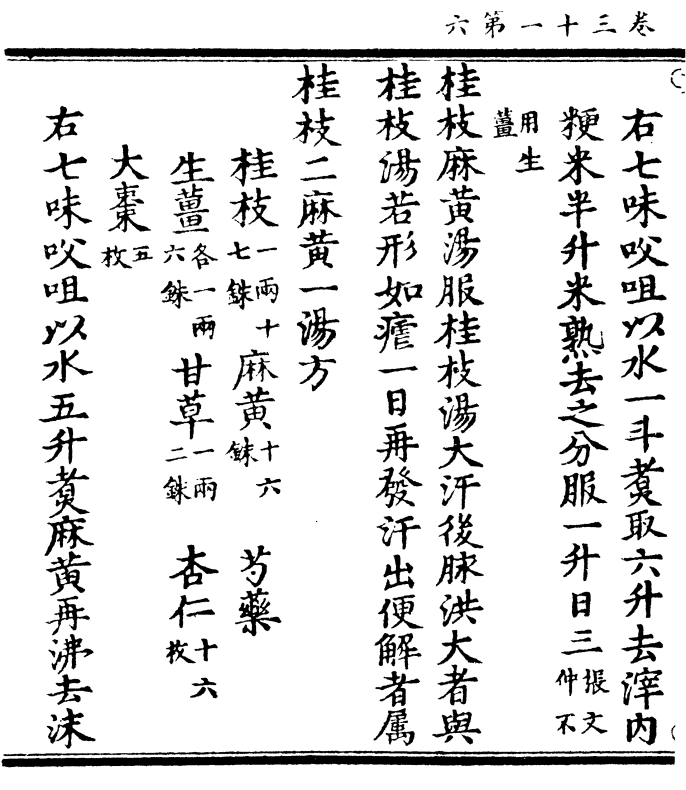 卷三十一第六
右七味㕮咀以水一斗煑取六升去滓内
粳米半升米熟去之分服一升日三張文仲不
用生薑
桂枝麻黄湯服桂枝湯大汗後脉洪大者與
桂枝湯若形如瘧一日再發汗出便解者属
桂枝二麻黄一湯方
桂枝一兩十七銖 麻黄十六銖 芍藥
生薑各一兩六銖 甘草一兩二銖 杏仁十六枚
大棗五枚
右七味㕮咀以水五升煑麻黄再沸去沫